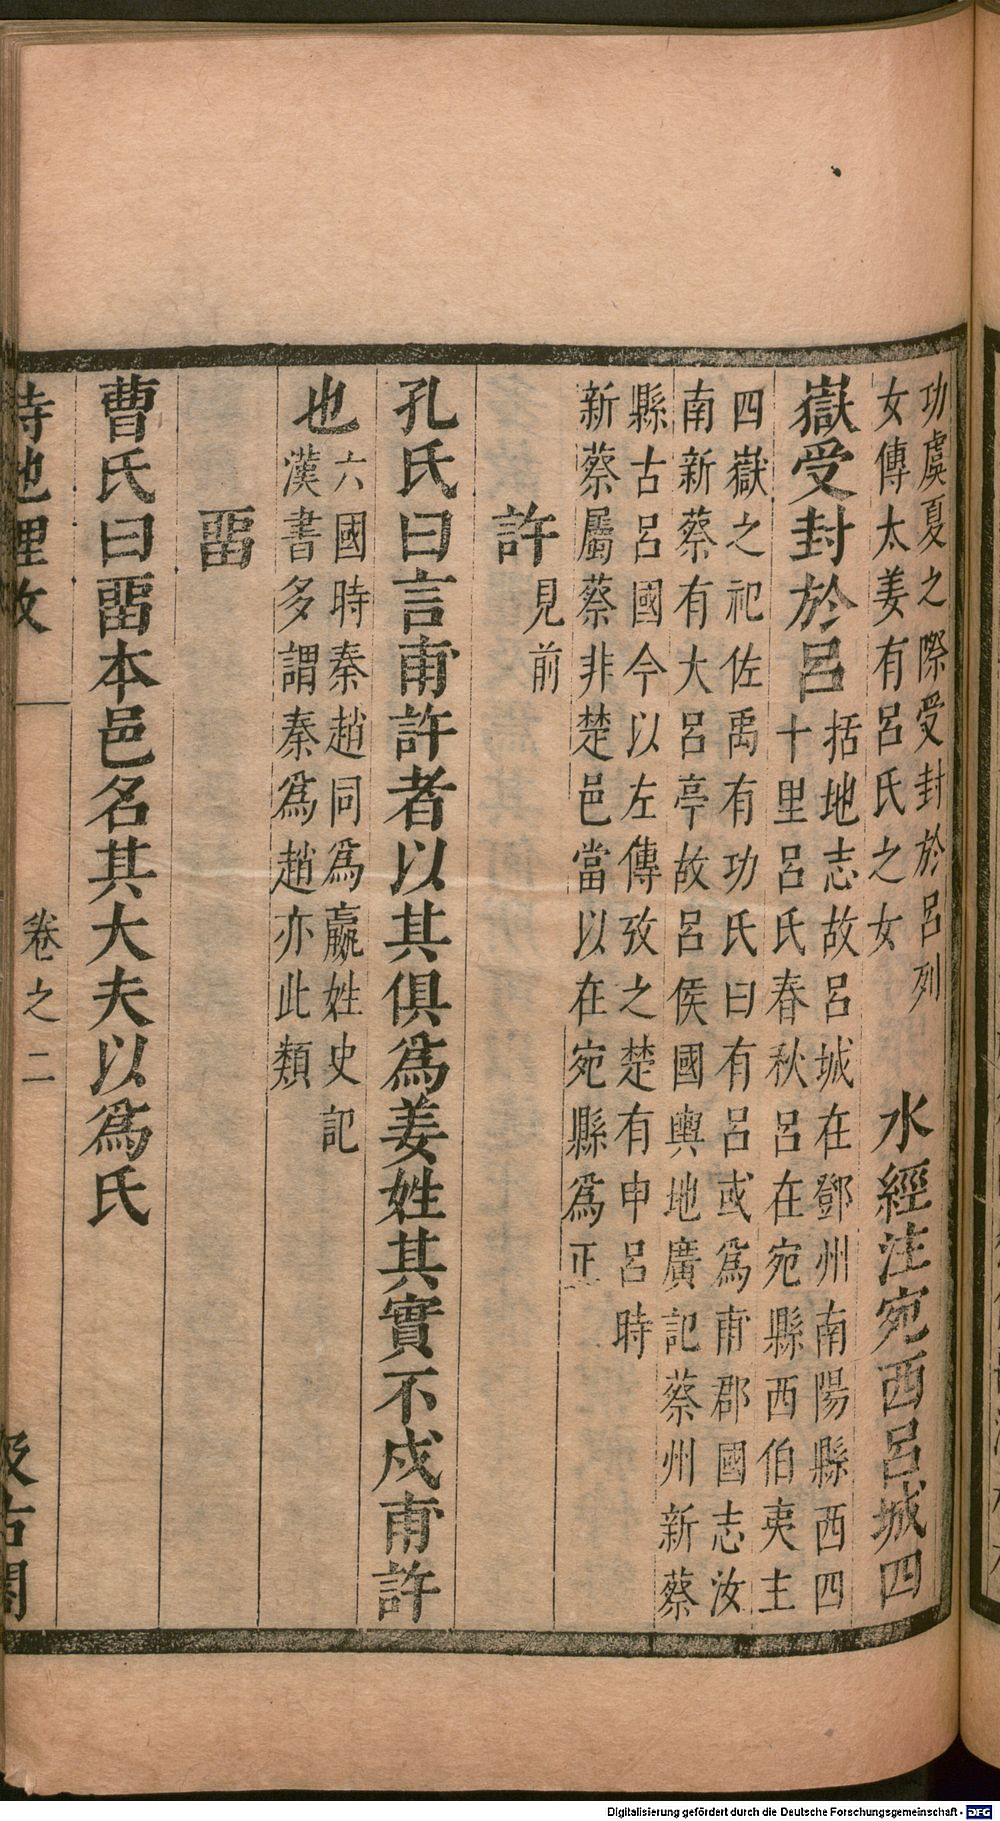 功虞夏之際受封於呂列
女傳太姜有呂氏之女
水經注宛西呂城四
嶽受封於呂
括地志故呂城在鄧州南陽縣西四
十里呂氏春秋呂在宛縣西伯夷主
四嶽之祀佐禹有功氏曰有呂或為甫郡國志汝
南新蔡有大呂亭故呂侯國輿地廣記蔡州新蔡
縣古呂國今以左傳攷之楚有申呂時
新蔡屬蔡非楚邑當以在宛縣為正
許見前
孔氏曰言甫許者以其俱爲姜姓其實不戍甫許
也
六國時秦趙同為嬴姓史記
漢書多謂秦為趙亦此類
畱
曹氏曰畱本邑名其大夫以爲氏
詩地理攷
卷之二
汲古閣
Digitalisierung gefördert durch die Deutsche Forschungsgemeinschaft - DFG